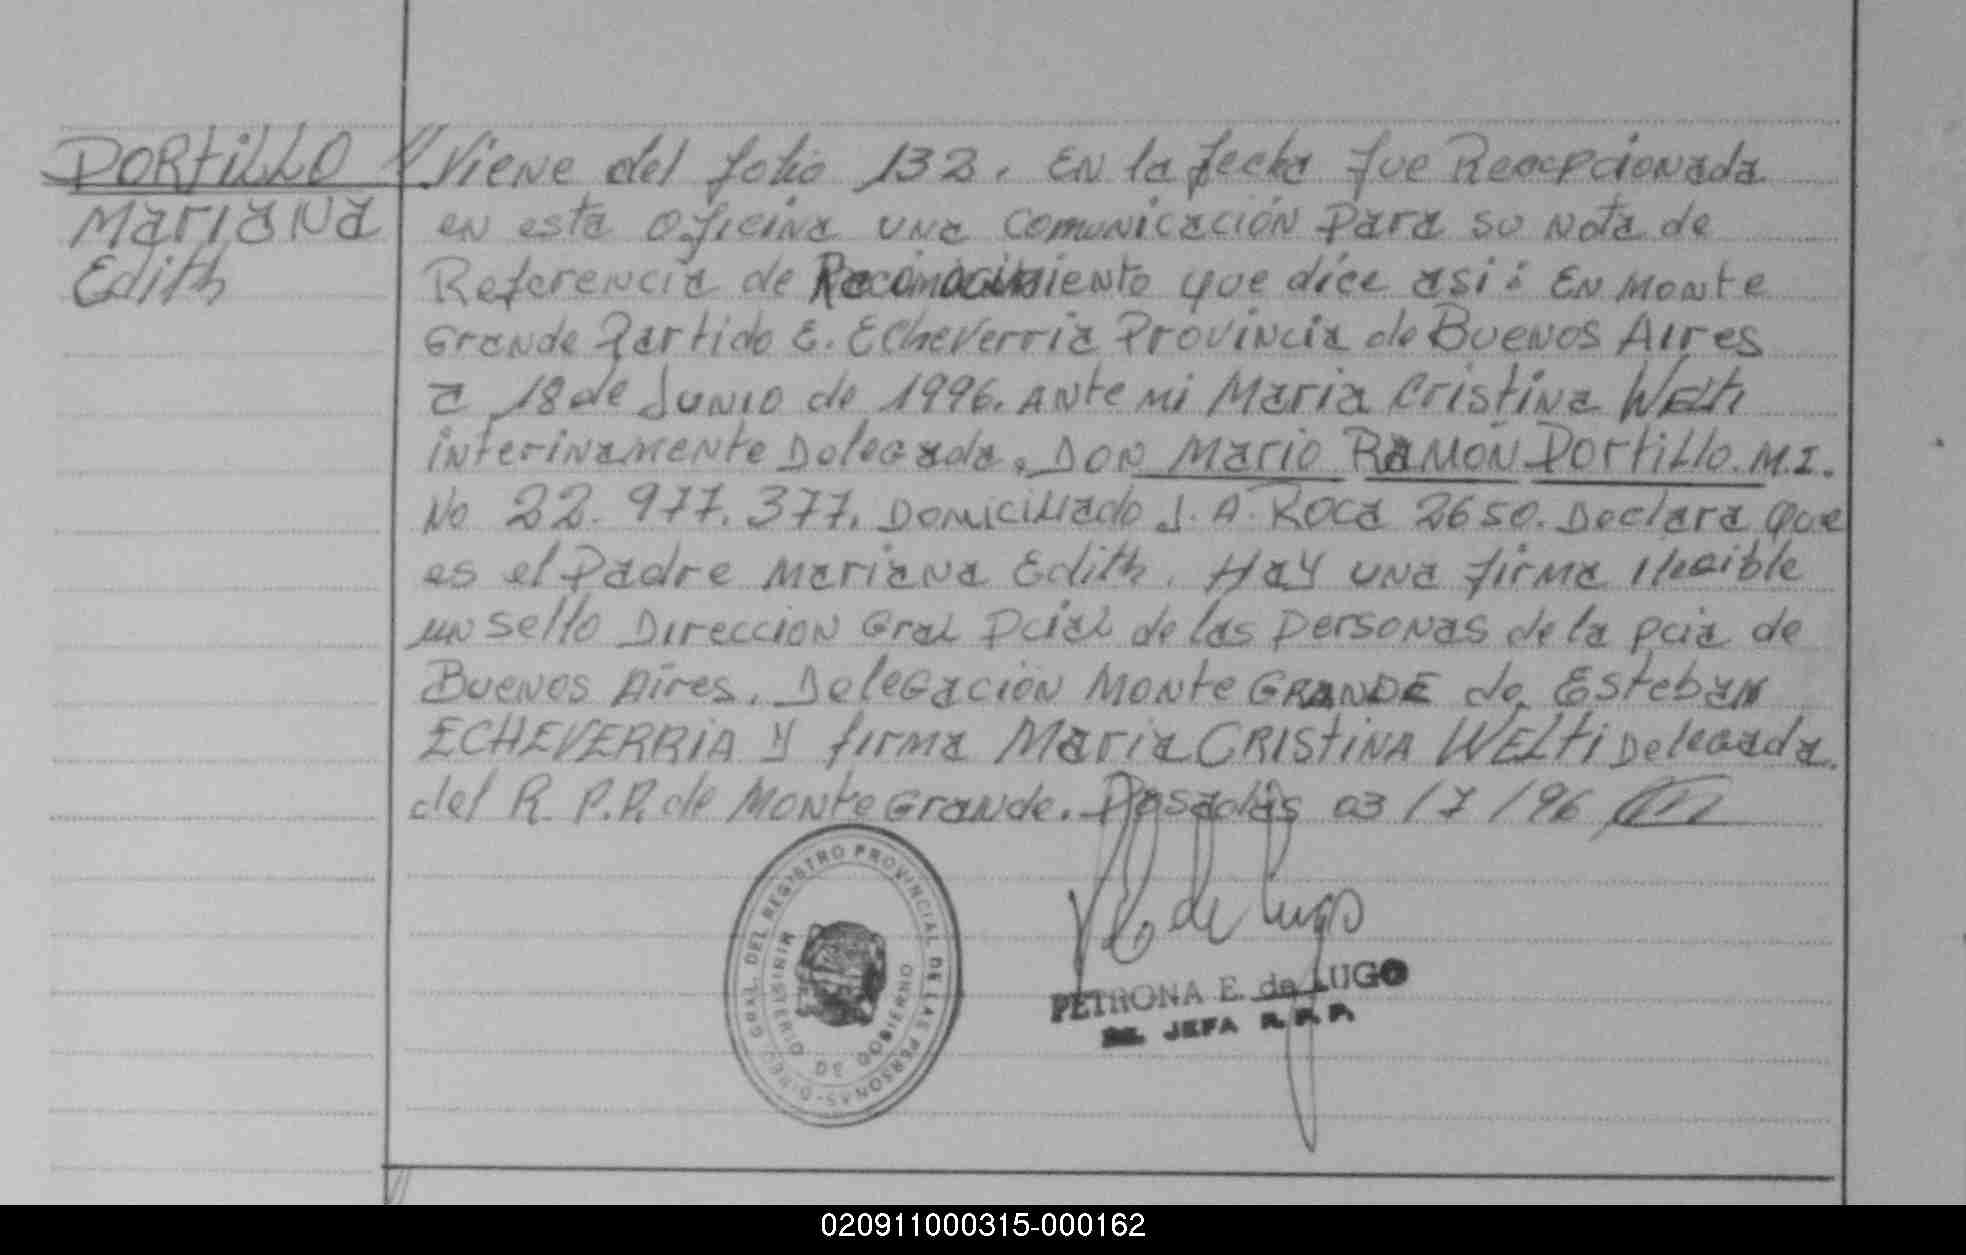 PORtiLLO
MARIANA
Edith
// Viene del folio 132. EN la fecha fue Recepcionada
en esta oficina una comunicación para su nota de
Referencia de Reconocimiento que dice asi: EN MONte
Grande Partido E. Echeverria Provincia de Buenos Aires
a 18 de Junio de 1996. ANte mi Maria Cristina Welti
interinamente Delegada, DON Mario RAMÓN PORtiLLO. M.I.
No 22.977.377. Domiciliado J. A. Roca 2650. Declara que
es el Padre Mariana Edith. Hay una firma ilegible
un sello Direccion Gral Pcial de las Personas de la pcia de
Buenos Aires. Delegación Monte GRANDE de Esteban
ECHEVERRIA y firma Maria CRIStiNA WELti Delegada
del R. P.P. de Monte Grande. Posadas 03/7/96
DIREC. GRAL. DEL REGISTRO PROVINCIAL DE LAS PERSONAS
MINISTERIO DE GOBIERNO
de Lugo
PETRONA E. de LUGO
JEFA R.P.P.
020911000315-000162